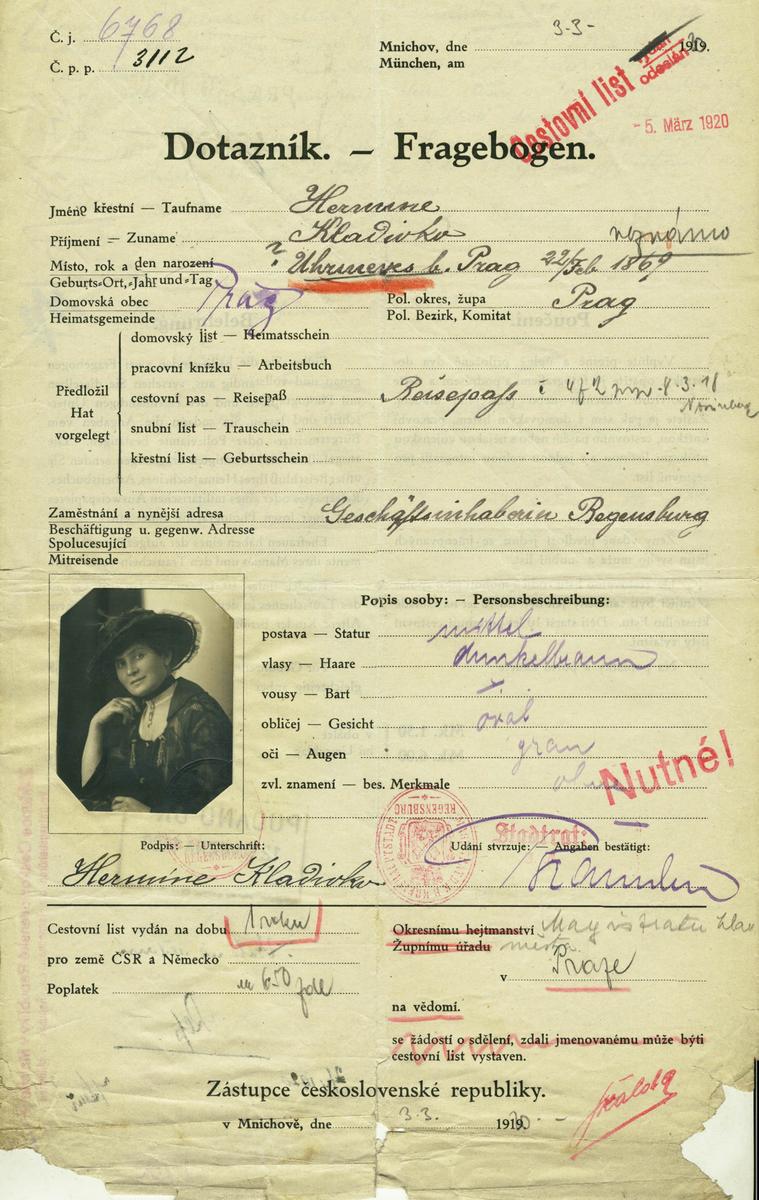 Č. j. 6768
Č. p. p. 3112
Mnichov, dne 3.3- 1919.
München, am
Cestovní list
odeslán
-5. März 1920
Dotazník. — Fragebogen.
Jméno křestní — Taufname Hermine
Příjmení — Zuname Kladivko
Místo, rok a den narození ? Uhrineves b. Prag 22/Feb 1869
Geburts-Ort, -Jahr und -Tag
Domovská obec Prag
Heimatsgemeinde
Pol. okres, župa Prag
Pol. Bezirk, Komitat
Předložil
Hat
vorgelegt
domovský list — Heimatsschein
pracovní knížku — Arbeitsbuch
cestovní pas — Reisepaß Reisepass
snubní list — Trauschein
křestní list — Geburtsschein
Zaměstnání a nynější adresa Geschäftsinhaberin Regensburg
Beschäftigung u. gegenw. Adresse
Spolucesující
Mitreisende
Popis osoby: — Personsbeschreibung:
postava — Statur mittel
vlasy — Haare dunkelbraun
vousy — Bart —
obličej — Gesicht oval
oči — Augen grau
zvl. znamení — bes. Merkmale ohne
Nutné!
REGENSBURG
Stadtrat:
Podpis: — Unterschrift:
Udání stvrzuje: — Angaben bestätigt:
Hermine Kladivko
Cestovní list vydán na dobu 1 roku
pro země ČSR a Německo
Poplatek
Okresnímu hejtmanství Magistrátu hlav
Župnímu úřadu města
v Praze
na vědomí.
se žádostí o sdělení, zdali jmenovanému může býti
cestovní list vystaven.
Zástupce československé republiky.
v Mnichově, dne 3.3. 1919